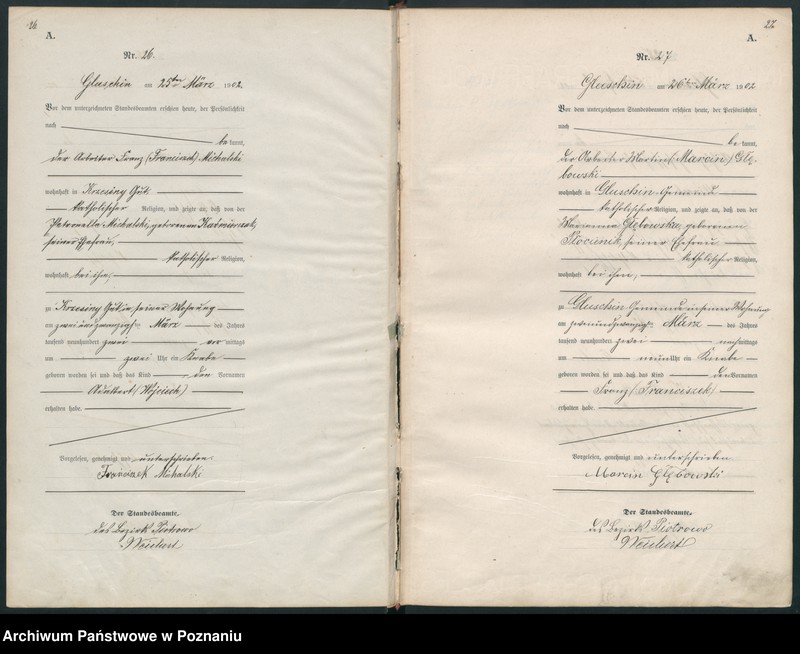 26.
A.
Nr. 26.
Gluschin am 25ten März 1902.
Vor dem unterzeichneten Standesbeamten erschien heute, der Persönlichkeit
nach
be kannt,
der Arbeiter Franz (Franciszek) Michalski
wohnhaft in Krzesiny Gut
katholischer Religion, und zeigte an, daß von der
Petronella Michalski, geborenen Kaźmierczak,
seiner Ehefrau,
katholischer Religion,
wohnhaft bei ihm,
zu Krzesiny Gut in seiner Wohnung
am zwei und zwanzigsten März des Jahres
tausend neunhundert zwei vor mittags
um zwei Uhr ein Knabe
geboren worden sei und daß das Kind den Vornamen
Adalbert (Wojciech)
erhalten habe.
Vorgelesen, genehmigt und unterschrieben
Franciszek Michalski
Der Standesbeamte.
des Bezirk Piotrowo
27.
A.
Nr. 27
Gluschin am 26ten März 1902
Vor dem unterzeichneten Standesbeamten erschien heute, der Persönlichkeit
nach
be kannt,
der Arbeiter Martin (Marcin) Głę-
bowski
wohnhaft in Gluschin Gemeinde
katholischer Religion, und zeigte an, daß von der
Marianna Głębowska, geborenen
Płócienik, seiner Ehefrau
katholischer Religion,
wohnhaft bei ihm,
zu Gluschin Gemeinde in seiner Wohnung
am zweiundzwanzigsten März des Jahres
tausend neunhundert zwei nachmittags
um neun Uhr ein Knabe
geboren worden sei und daß das Kind den Vornamen
Franz (Franciszek)
erhalten habe.
Vorgelesen, genehmigt und unterschrieben
Marcin Głębowski
Der Standesbeamte.
des Bezirk Piotrowo
Archiwum Państwowe w Poznaniu